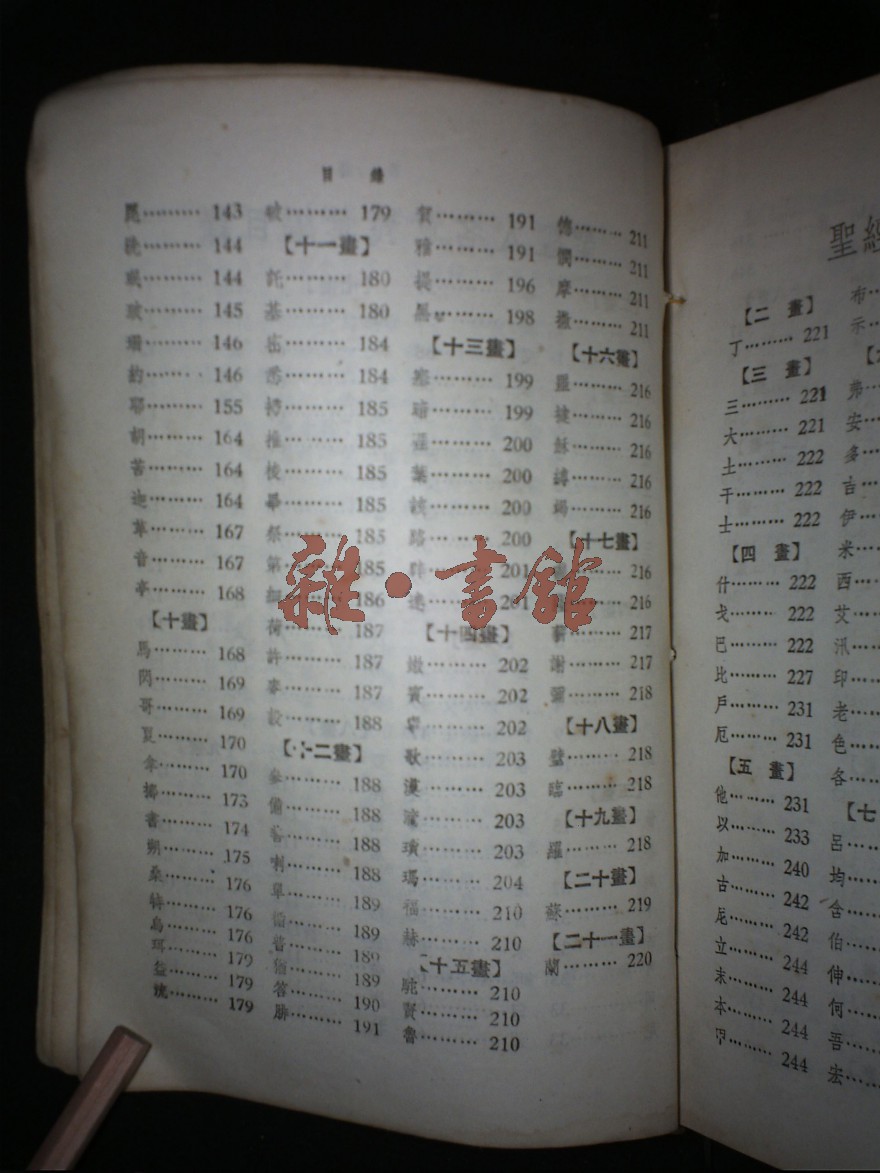 目 錄
143
144
144
145
珊……… 146
約……… 146
耶……… 155
胡……… 164
苦……… 164
迦……… 164
革……… 167
音……… 167
亭……… 168
【十畫】
馬……… 168
閃……… 169
哥……… 169
夏……… 170
170
挪……… 173
書……… 174
朔……… 175
桑……… 176
176
烏……… 176
珥……… 179
益……… 179
179
破……… 179
【十一畫】
託……… 180
基……… 180
密……… 184
悉……… 184
185
推……… 185
梭……… 185
畢……… 185
祭……… 185
第……… 185
細……… 186
荷……… 187
許……… 187
麥……… 187
設……… 188
【十二畫】
188
備……… 188
188
喇……… 188
單……… 189
189
普……… 189
猶……… 189
答……… 190
191
賀……… 191
雅……… 191
提……… 196
黑……… 198
【十三畫】
塞……… 199
暗……… 199
200
葉……… 200
該……… 200
路……… 200
201
達……… 201
【十四畫】
202
賓……… 202
寧……… 202
歌……… 203
漢……… 203
203
203
瑪……… 204
福……… 210
赫……… 210
【十五畫】
駝……… 210
賢……… 210
魯……… 210
德……… 211
211
摩……… 211
撒……… 211
【十六畫】
216
216
穌……… 216
216
錫……… 216
【十七畫】
216
216
217
謝……… 217
彌……… 218
【十八畫】
璧……… 218
臨……… 218
【十九畫】
羅……… 218
【二十畫】
蘇……… 219
【二十一畫】
蘭……… 220
雜·書館
聖經
【二 畫】
丁……… 221
【三 畫】
三……… 221
大……… 221
土……… 222
干……… 222
士……… 222
【四 畫】
什……… 222
戈……… 222
巴……… 222
比……… 227
戶……… 231
厄……… 231
【五 畫】
他……… 231
以……… 233
加……… 240
古……… 242
尼……… 242
立……… 244
末……… 244
本……… 244
甲……… 244
布
示
弗
安
多
吉
伊
米
西
艾
汛
印
老
色
各
【七
呂
均
含
伯
伸
何
吾
宏